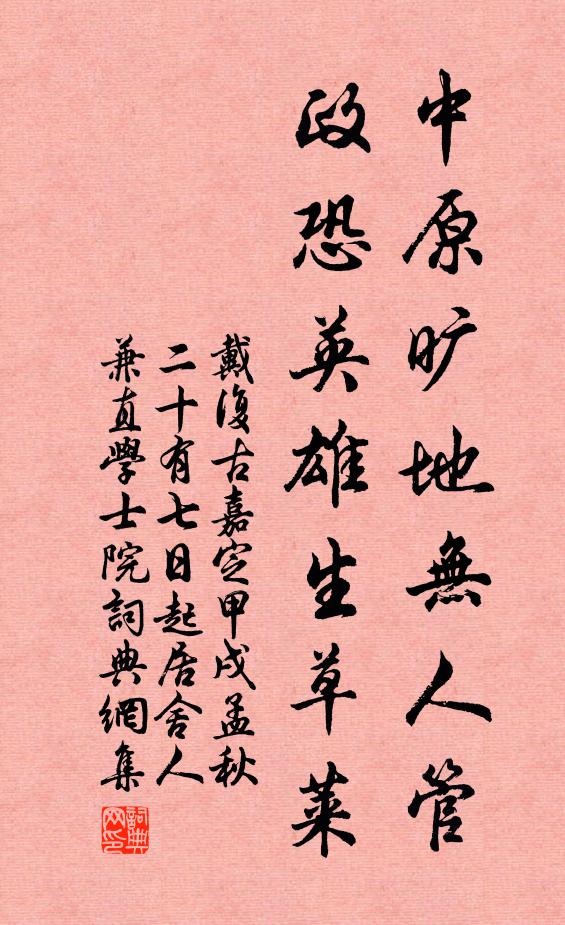 中原旷地無人管
政恐英雄生草莱
戴復古嘉定甲戌孟秋
二十有七日起居舍人
兼直學士院詞典網集
詞典网印